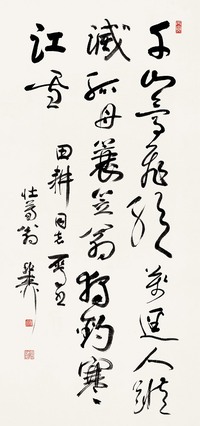 千山鳥飛絕萬逕人蹤
滅孤舟蓑笠翁獨釣寒
江雪
田耕同志
壮暮翁 稚柳